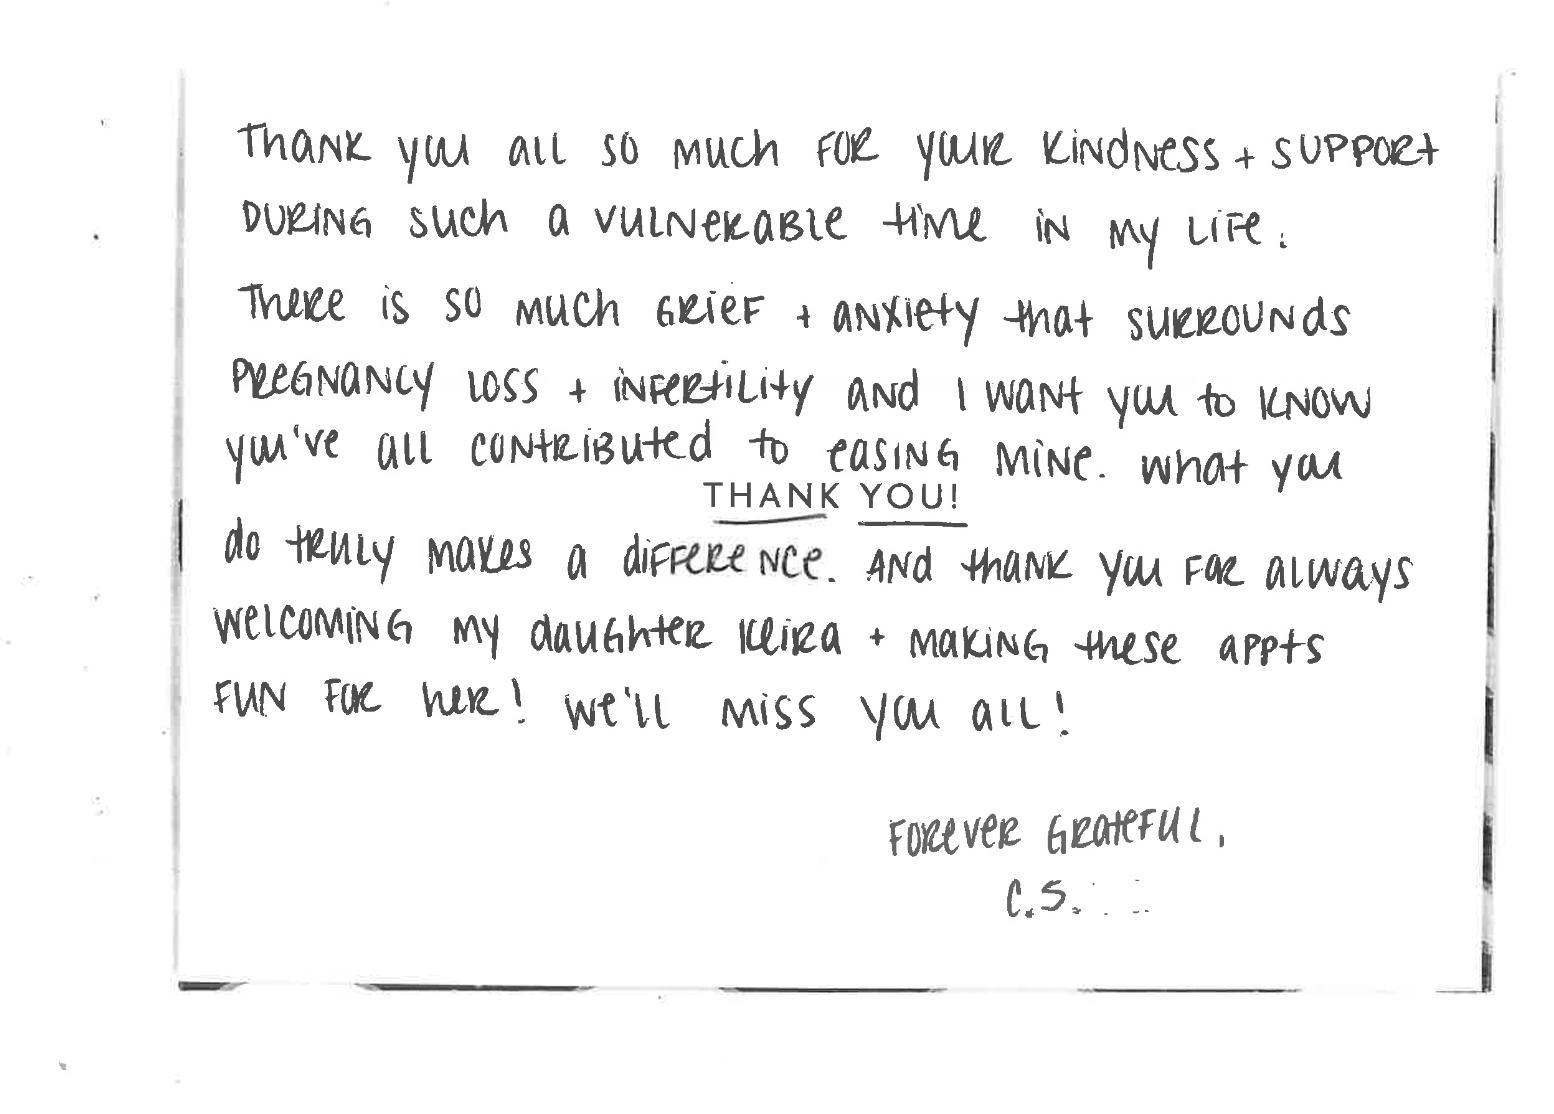 Thank you all so much for your kindness + support
during such a vulnerable time in my life.
There is so much grief + anxiety that surrounds
pregnancy loss + infertility and I want you to know
you've all contributed to easing mine. What you
THANK YOU!
do truly makes a difference. And thank you for always
welcoming my daughter Keira + making these appts
fun for her! We'll miss you all!
Forever Grateful,
C.S.